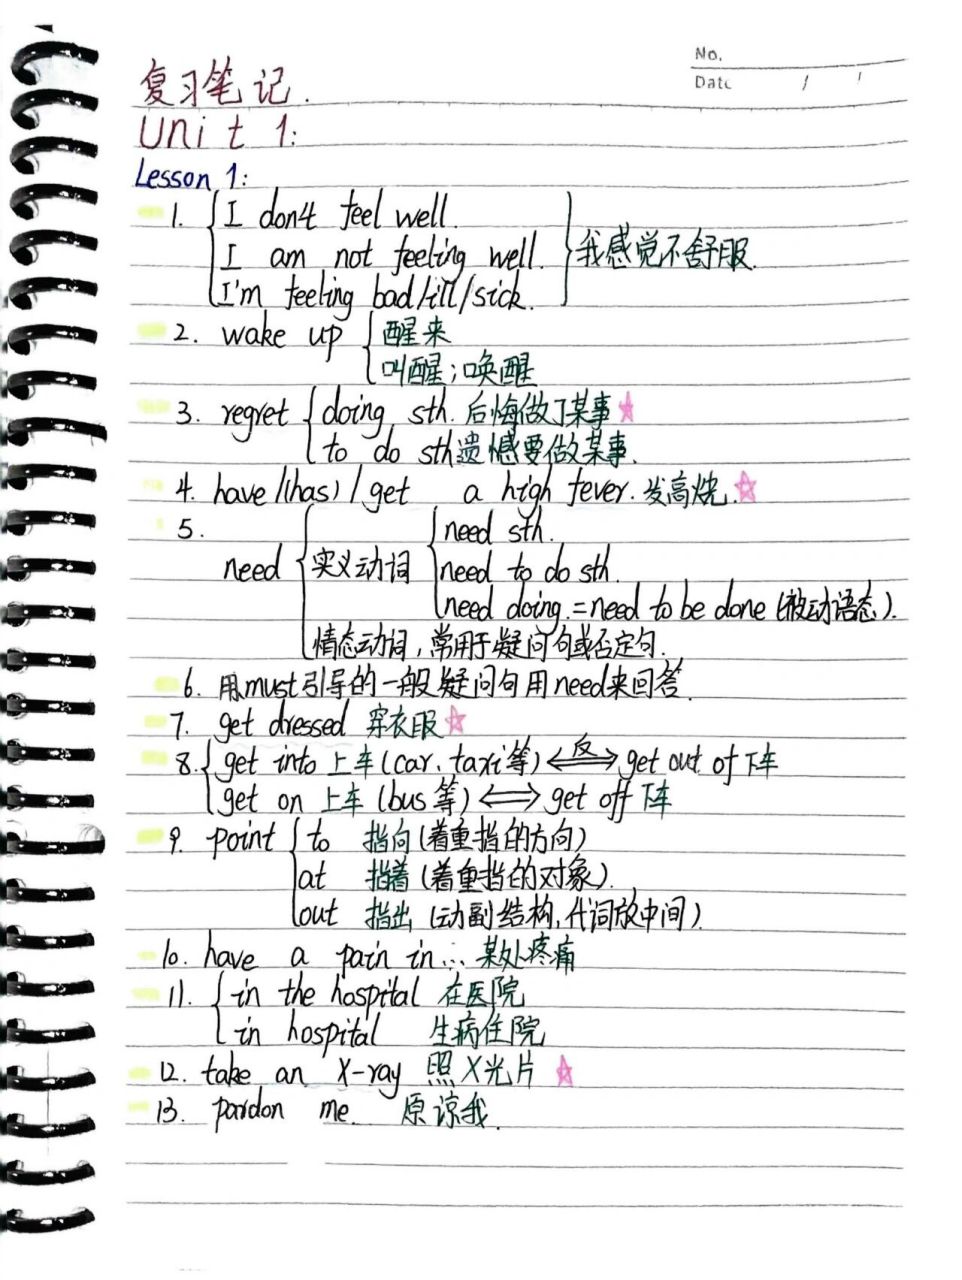 No.
Date / /
复习笔记.
Unit 1:
Lesson 1:
1. { I don't feel well.
I am not feeling well. } 我感觉不舒服.
I'm feeling bad/ill/sick.
2. wake up { 醒来
叫醒;唤醒
3. regret { doing sth. 后悔做了某事 ☆
to do sth遗憾要做某事.
4. have/(has)/get a high fever. 发高烧. ☆
5. need sth.
need { 实义动词 { need to do sth.
need doing. = need to be done (被动语态).
情态动词, 常用于疑问句或否定句.
6. 用must引导的一般疑问句用need来回答.
7. get dressed 穿衣服 ☆
8. { get into 上车 (car、taxi等) <=反=> get out of 下车
get on 上车 (bus等) <=> get off 下车
9. point { to 指向 (着重指的方向)
at 指着 (着重指的对象).
out 指出 (动副结构, 代词放中间)
10. have a pain in... 某处疼痛
11. { in the hospital 在医院
in hospital 生病住院
12. take an X-ray 照X光片 ☆
13. pardon me. 原谅我.